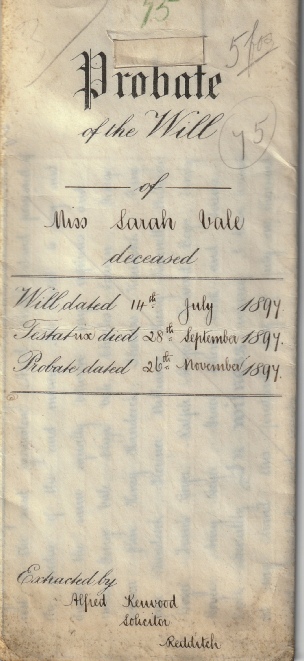 75
5/-
Probate
of the Will
75
of
Miss Sarah Vale
deceased
Will dated 14th July 1897
Testatrix died 28th September 1897.
Probate dated 26th November 1897.
Extracted by
Alfred Kenwood
Solicitor
Redditch